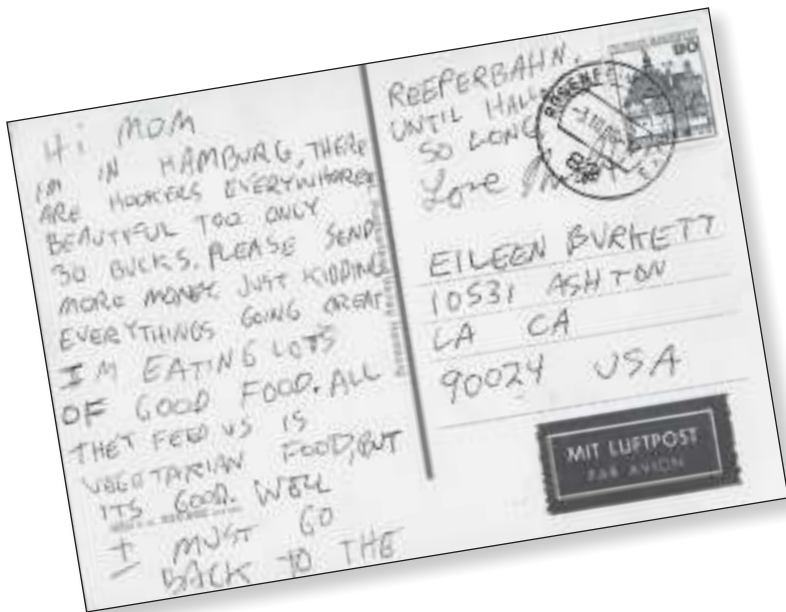 Hi MOM
IM IN HAMBURG, THERE
ARE HOOKERS EVERYWHERE
BEAUTIFUL TOO ONLY
30 BUCKS. PLEASE SEND
MORE MONEY. JUST KIDDING
EVERYTHINGS GOING GREAT
IM EATING LOTS
OF GOOD FOOD. ALL
THEY FEED US IS
VEGETARIAN FOOD, BUT
ITS GOOD. WELL
I MUST GO
BACK TO THE
REEPERBAHN.
UNTIL
SO LONG
Love
80
EILEEN BURKETT
10531 ASHTON
LA CA
90024 USA
MIT LUFTPOST
PAR AVION